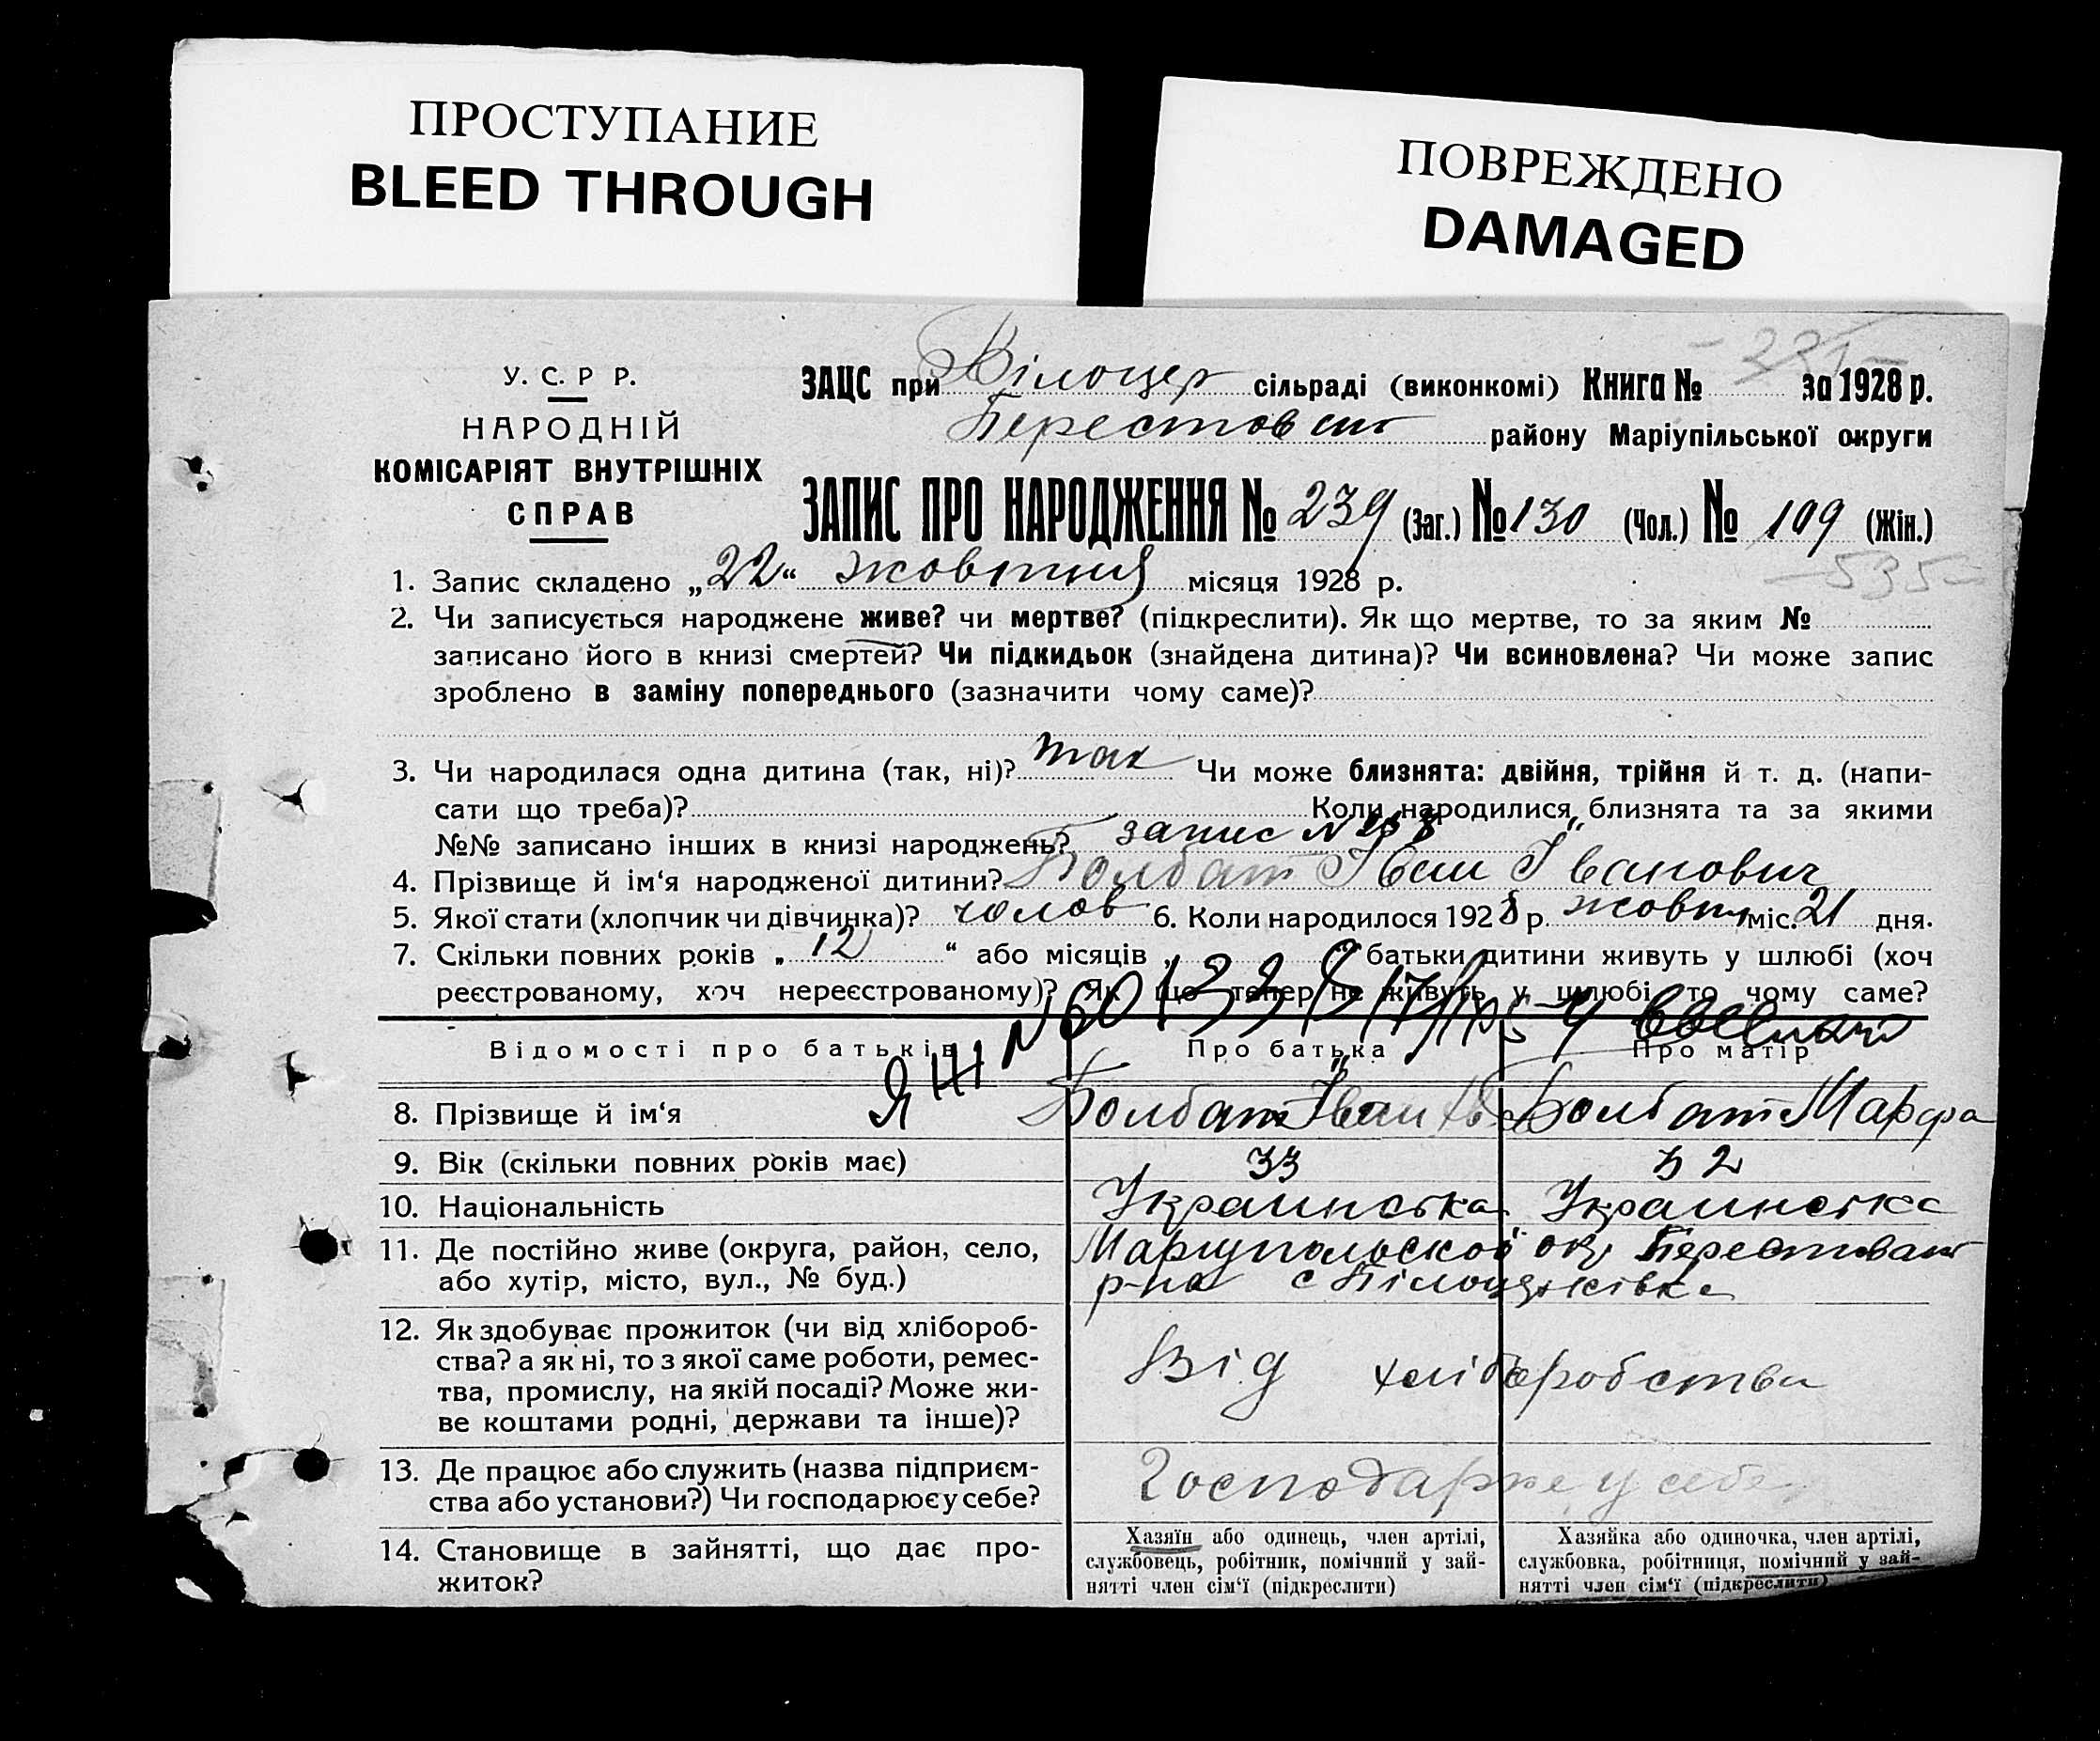 ПРОСТУПАНИЕ
BLEED THROUGH
ПОВРЕЖДЕНО
DAMAGED
У. С. Р Р.
НАРОДНІЙ
КОМІСАРІЯТ ВНУТРІШНІХ
СПРАВ
ЗАЦС при Білоцер сільраді (виконкомі) Книга № за 1928 р.
Берестов району Маріупільської округи
ЗАПИС ПРО НАРОДЖЕННЯ № 239 (Заг.) № 130 (Чол.) № 109 (Жін.)
-535-
1. Запис складено „22“ жовтня місяця 1928 р.
2. Чи записується народжене живе? чи мертве? (підкреслити). Як що мертве, то за яким №
записано його в книзі смертей? Чи підкидьок (знайдена дитина)? Чи всиновлена? Чи може запис
зроблено в заміну попереднього (зазначити чому саме)?
3. Чи народилася одна дитина (так, ні)? так Чи може близнята: двійня, трійня й т. д. (напи-
сати що треба)? Коли народилися близнята та за якими
№№ записано інших в книзі народжень? запис N
4. Прізвище й ім‘я народженої дитини? Болбат Іван Іванович
5. Якої стати (хлопчик чи дівчинка)? чолов 6. Коли народилося 1928 р. жовтн міс. 21 дня.
7. Скільки повних років „ 12 “ або місяців „ “ батьки дитини живуть у шлюбі (хоч
реєстрованому, хоч нереєстрованому)? Як що тепер не живуть у шлюбі, то чому саме?
Відомості про батьків Про батька Про матір
8. Прізвище й ім‘я Болбат Іван Болбат Марфа
9. Вік (скільки повних років має) 33 32
10. Національність Украинська Украинська
11. Де постійно живе (округа, район, село, Мариупольской окр Берестован
або хутір, місто, вул., № буд.) р-на с Білоцерківка
12. Як здобуває прожиток (чи від хлібороб-
ства? а як ні, то з якої саме роботи, ремес- Від хліборобства
тва, промислу, на якій посаді? Може жи-
ве коштами родні, держави та інше)?
13. Де працює або служить (назва підприєм- Господарює у себе
ства або установи?) Чи господарює у себе?
14. Становище в зайнятті, що дає про-
житок?
Хазяїн або одинець, член артілі,
службовець, робітник, помічний у зай-
нятті член сім‘ї (підкреслити)
Хазяйка або одиночка, член артілі,
службовка, робітниця, помічний у зай-
нятті член сім‘ї (підкреслити)